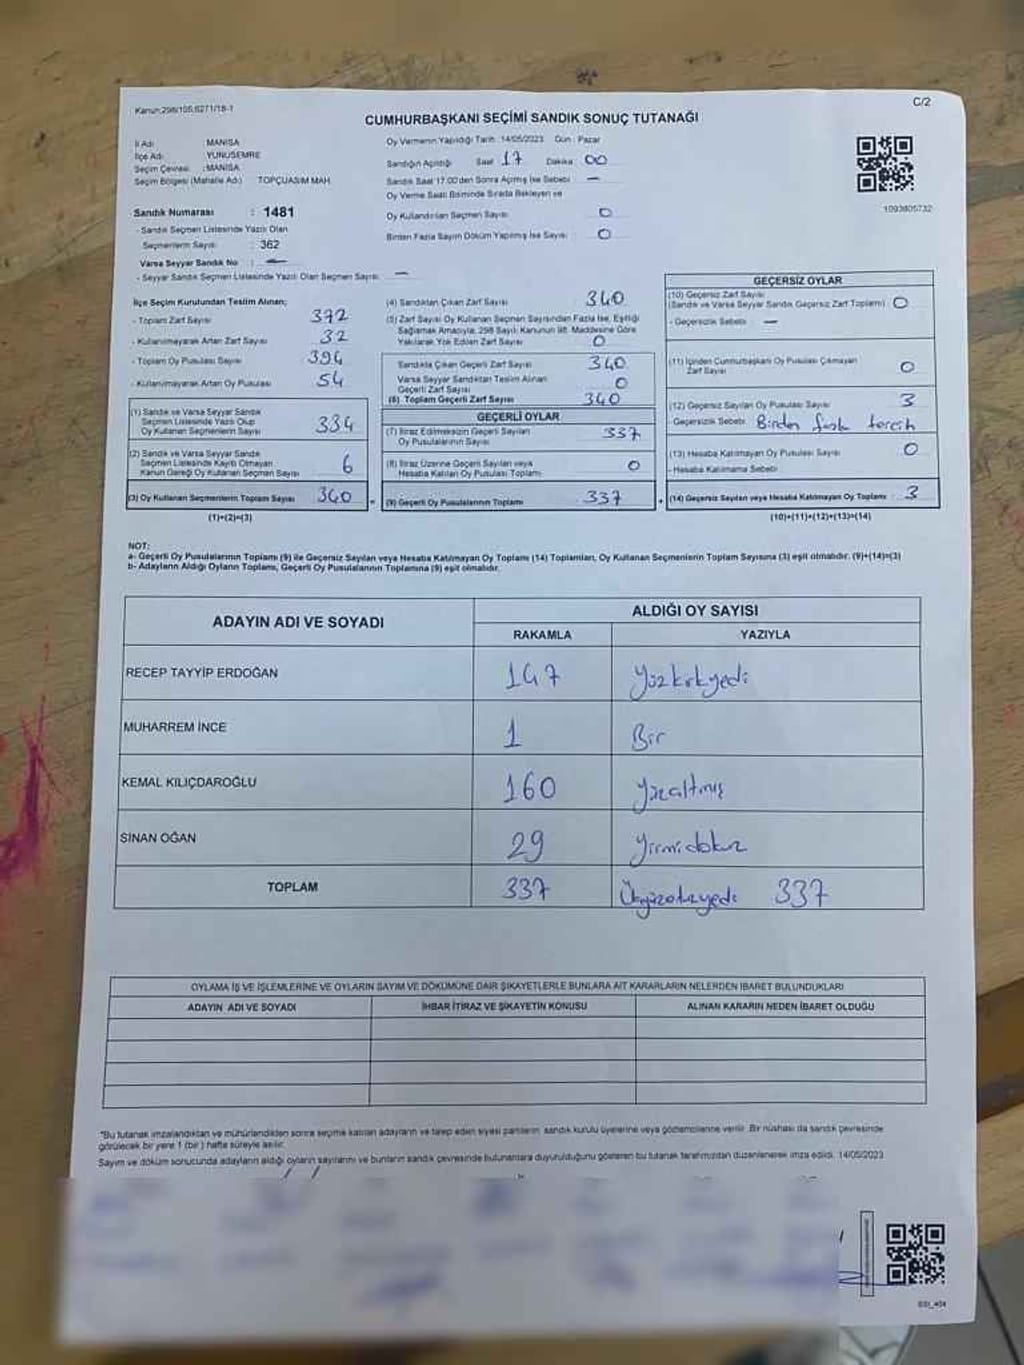 Kanun:298/105,6271/18-1
C/2
CUMHURBAŞKANI SEÇİMİ SANDIK SONUÇ TUTANAĞI
İl Adı : MANİSA
İlçe Adı : YUNUSEMRE
Seçim Çevresi : MANİSA
Seçim Bölgesi (Mahalle Adı) : TOPÇUASIM MAH.
Sandık Numarası : 1481
- Sandık Seçmen Listesinde Yazılı Olan
Seçmenlerin Sayısı : 362
Varsa Seyyar Sandık No : —
- Seyyar Sandık Seçmen Listesinde Yazılı Olan Seçmen Sayısı : —
Oy Vermenin Yapıldığı Tarih : 14/05/2023 Gün : Pazar
Sandığın Açıldığı Saat 17 Dakika 00
Sandık Saat 17:00'den Sonra Açılmış İse Sebebi —
Oy Verme Saati Bitiminde Sırada Bekleyen ve
Oy Kullandırılan Seçmen Sayısı 0
Birden Fazla Sayım Döküm Yapılmış İse Sayısı : 0
1093805732
İlçe Seçim Kurulundan Teslim Alınan;
- Toplam Zarf Sayısı 372
- Kullanılmayarak Artan Zarf Sayısı 32
- Toplam Oy Pusulası Sayısı 394
- Kullanılmayarak Artan Oy Pusulası 54
(1) Sandık ve Varsa Seyyar Sandık
Seçmen Listesinde Yazılı Olup
Oy Kullanan Seçmenlerin Sayısı 334
(2) Sandık ve Varsa Seyyar Sandık
Seçmen Listesinde Kayıtlı Olmayan
Kanun Gereği Oy Kullanan Seçmen Sayısı 6
(3) Oy Kullanan Seçmenlerin Toplam Sayısı 340
(1)+(2)=(3)
(4) Sandıktan Çıkan Zarf Sayısı 340
(5) Zarf Sayısı Oy Kullanan Seçmen Sayısından Fazla İse, Eşitliği
Sağlamak Amacıyla, 298 Sayılı Kanunun 98. Maddesine Göre
Yakılarak Yok Edilen Zarf Sayısı 0
Sandıkta Çıkan Geçerli Zarf Sayısı 340
Varsa Seyyar Sandıktan Teslim Alınan
Geçerli Zarf Sayısı 0
(6) Toplam Geçerli Zarf Sayısı 340
GEÇERLİ OYLAR
(7) İtiraz Edilmeksizin Geçerli Sayılan
Oy Pusulalarının Sayısı 337
(8) İtiraz Üzerine Geçerli Sayılan veya
Hesaba Katılan Oy Pusulası Toplamı 0
(9) Geçerli Oy Pusulalarının Toplamı 337
GEÇERSİZ OYLAR
(10) Geçersiz Zarf Sayısı
(Sandık ve Varsa Seyyar Sandık Geçersiz Zarf Toplamı) 0
- Geçersizlik Sebebi : —
(11) İçinden Cumhurbaşkanı Oy Pusulası Çıkmayan
Zarf Sayısı 0
(12) Geçersiz Sayılan Oy Pusulası Sayısı 3
Geçersizlik Sebebi Birden fazla tercih
(13) Hesaba Katılmayan Oy Pusulası Sayısı 0
- Hesaba Katılmama Sebebi
(14) Geçersiz Sayılan veya Hesaba Katılmayan Oy Toplamı : 3
(10)+(11)+(12)+(13)=(14)
NOT:
a- Geçerli Oy Pusulalarının Toplamı (9) ile Geçersiz Sayılan veya Hesaba Katılmayan Oy Toplamı (14) Toplamları, Oy Kullanan Seçmenlerin Toplam Sayısına (3) eşit olmalıdır. (9)+(14)=(3)
b- Adayların Aldığı Oyların Toplamı, Geçerli Oy Pusulalarının Toplamına (9) eşit olmalıdır.
ADAYIN ADI VE SOYADI ALDIĞI OY SAYISI
RAKAMLA YAZIYLA
RECEP TAYYİP ERDOĞAN 147 Yüzkırkyedi
MUHARREM İNCE 1 Bir
KEMAL KILIÇDAROĞLU 160 Yüzaltmış
SİNAN OĞAN 29 Yirmidokuz
TOPLAM 337 Üçyüzotuzyedi 337
OYLAMA İŞ VE İŞLEMLERİNE VE OYLARIN SAYIM VE DÖKÜMÜNE DAİR ŞİKAYETLERLE BUNLARA AİT KARARLARIN NELERDEN İBARET BULUNDUKLARI
ADAYIN ADI VE SOYADI İHBAR İTİRAZ VE ŞİKAYETİN KONUSU ALINAN KARARIN NEDEN İBARET OLDUĞU
*Bu tutanak imzalandıktan ve mühürlendikten sonra seçime katılan adayların ve talep eden siyasi partilerin sandık kurulu üyelerine veya gözlemcilerine verilir. Bir nüshası da sandık çevresinde
görülecek bir yere 1 (bir ) hafta süreyle asılır.
Sayım ve döküm sonucunda adayların aldığı oyların sayılarını ve bunların sandık çevresinde bulunanlara duyurulduğunu gösteren bu tutanak tarafımızdan düzenlenerek imza edildi. 14/05/2023